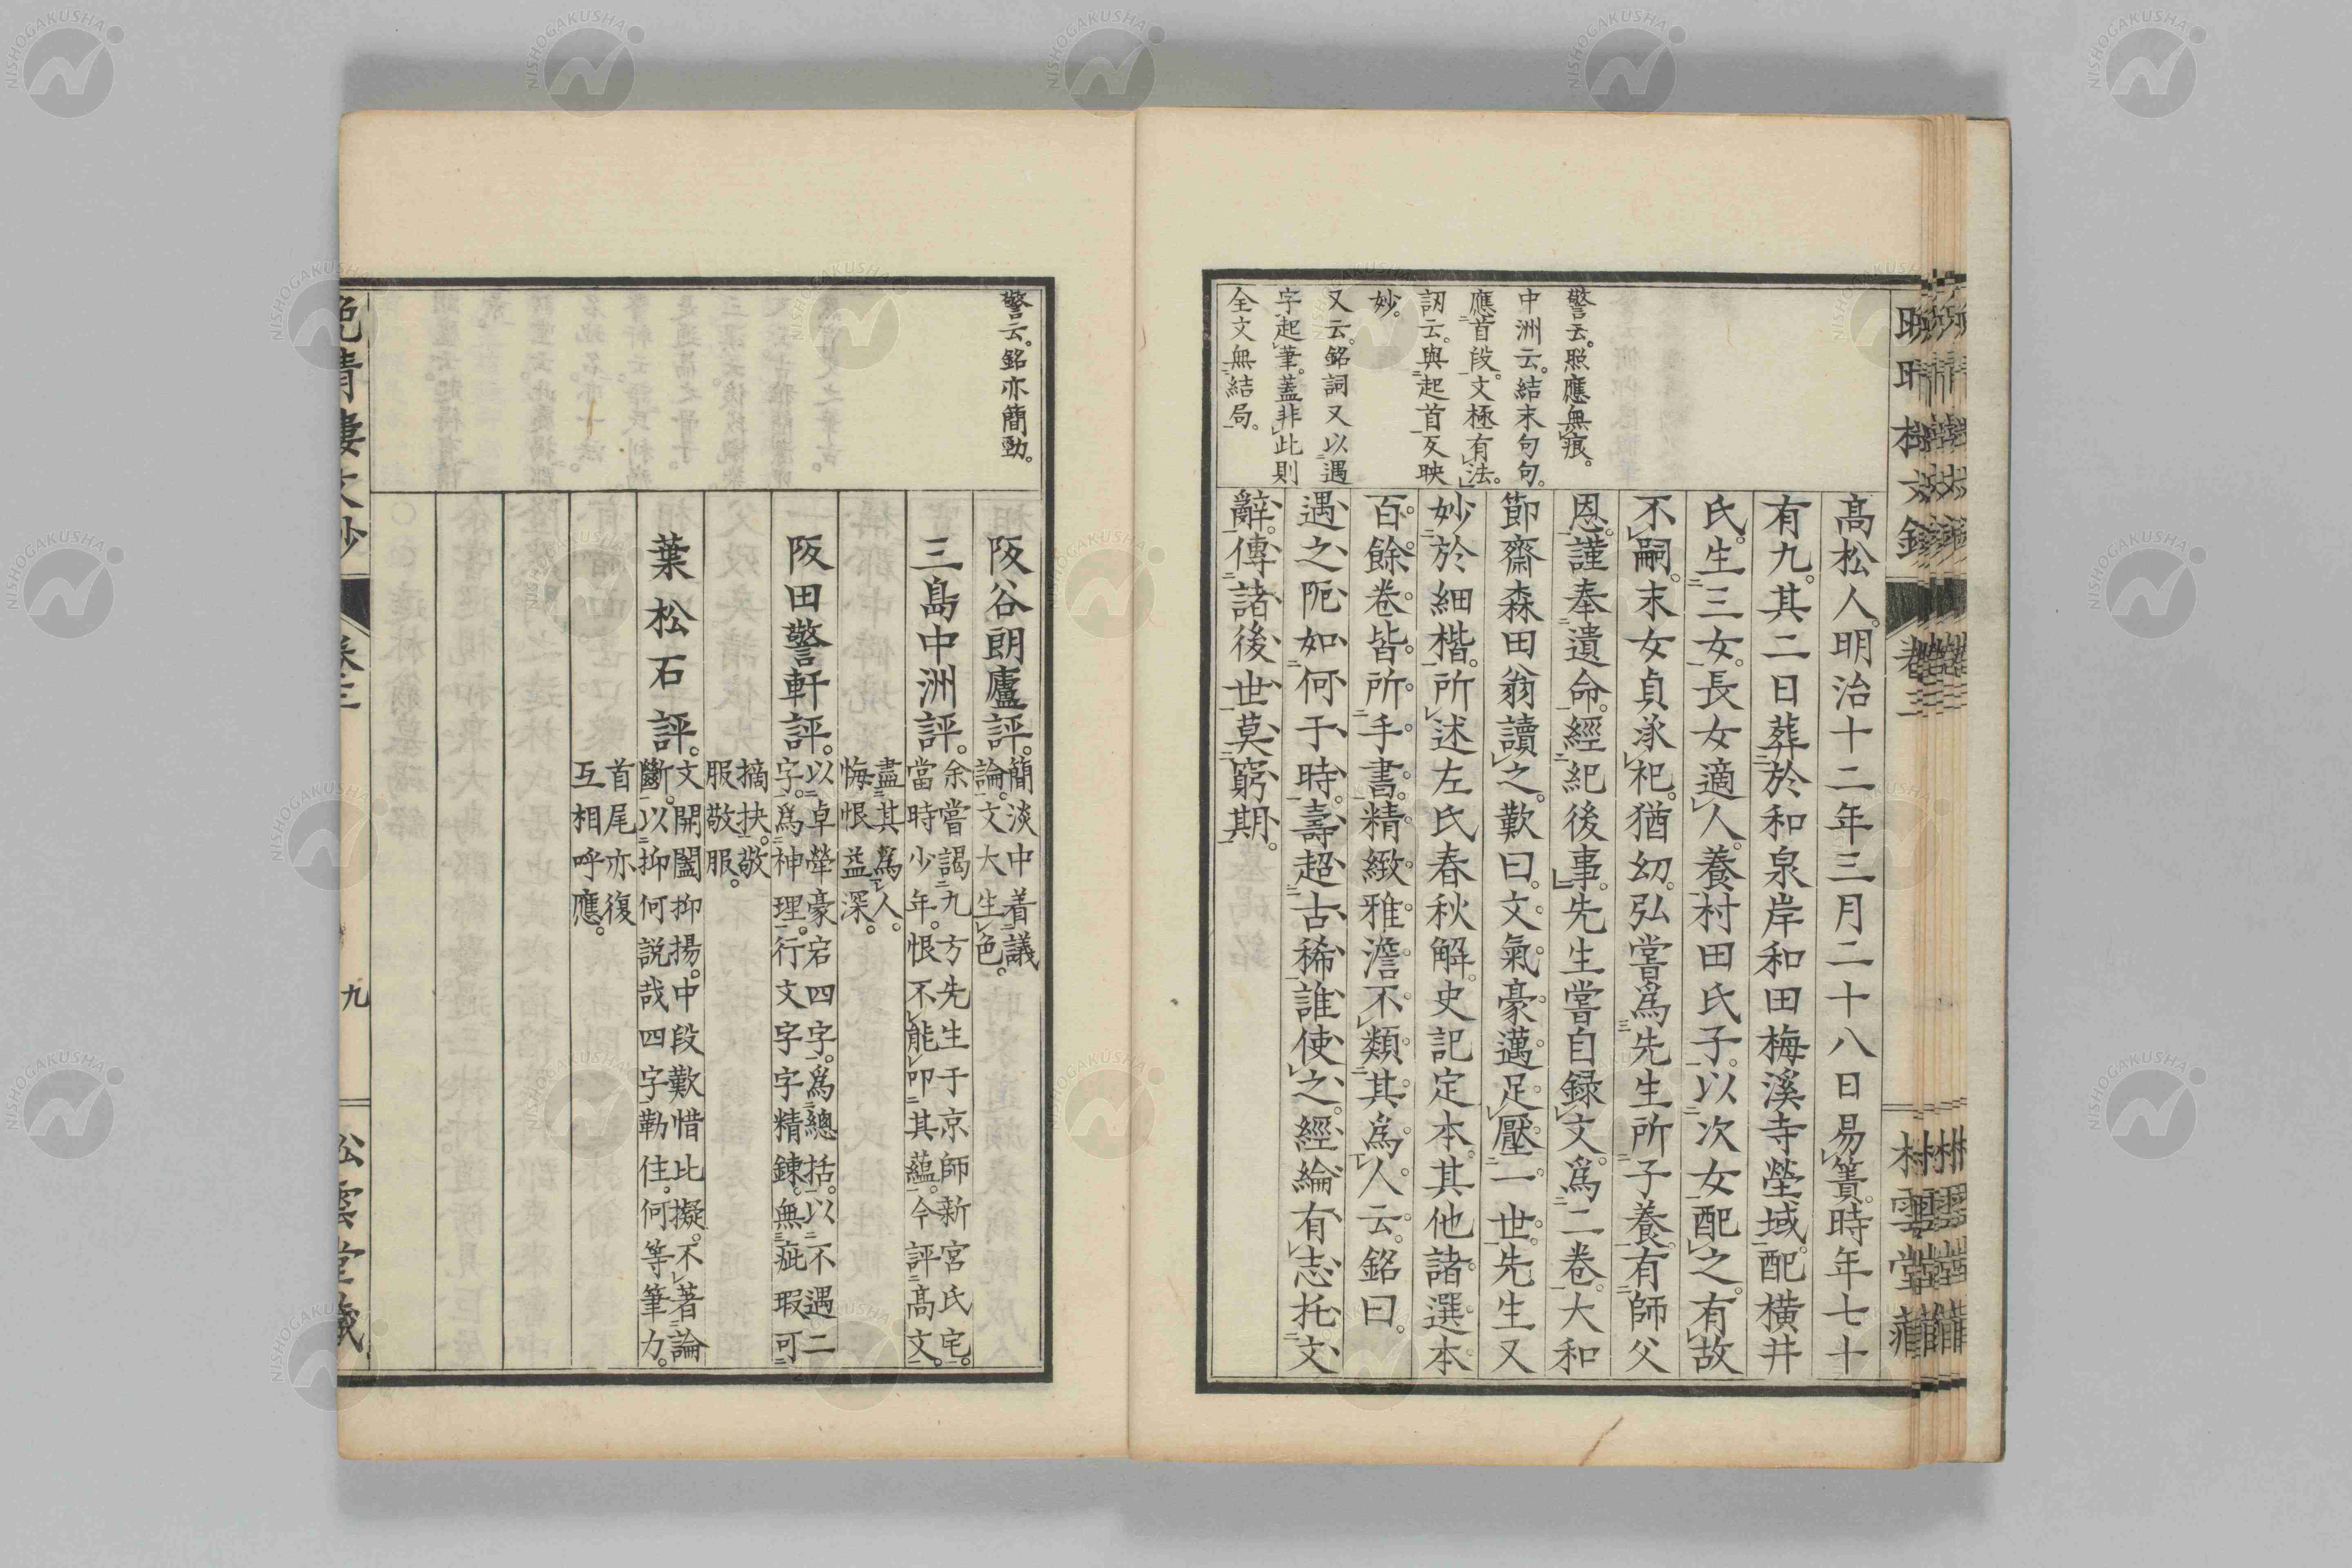 警云。照應無痕。
中洲云。結末句句。
應首段。文極有法。
訒云。與起首反映
妙。
又云。銘詞又以遇
字起筆。蓋非此則
全文無結局。
高松人。明治十二年三月二十八日易簀。時年七十
有九。其二日葬於和泉岸和田梅溪寺塋域。配横井
氏。生三女。長女適人。養村田氏子。以次女配之。有故
不嗣。末女貞承祀。猶幼。弘嘗爲先生所子養。有師父
恩。謹奉遺命。經紀後事。先生嘗自録文。爲二卷。大和
節齋森田翁讀之。歎曰。文氣豪邁。足壓一世。先生又
妙於細楷。所述左氏春秋解。史記定本。其他諸選本
百餘卷。皆所手書。精緻雅澹。不類其爲人云。銘曰。
遇之阨。如何于時。壽超古稀。誰使之。經綸有志托文
辭。傳諸後世莫窮期。
警云。銘亦簡勁。
阪谷朗廬評。簡淡中着議
論。文大生色。
三島中洲評。余嘗謁九方先生于京師新宮氏宅。
當時少年。恨不能叩其蘊。今評高文。
盡其爲人。
悔恨益深。
阪田警軒評。以卓犖豪宕四字。爲總括。以不遇二
字。爲神理。行文字字精錬。無疵瑕可
摘抉。敬
服敬服。
葉松石評。文開闔抑揚。中段歎惜比擬。不著論
斷。以抑何説哉四字勒住。何等筆力。
首尾亦復
互相呼應。
九